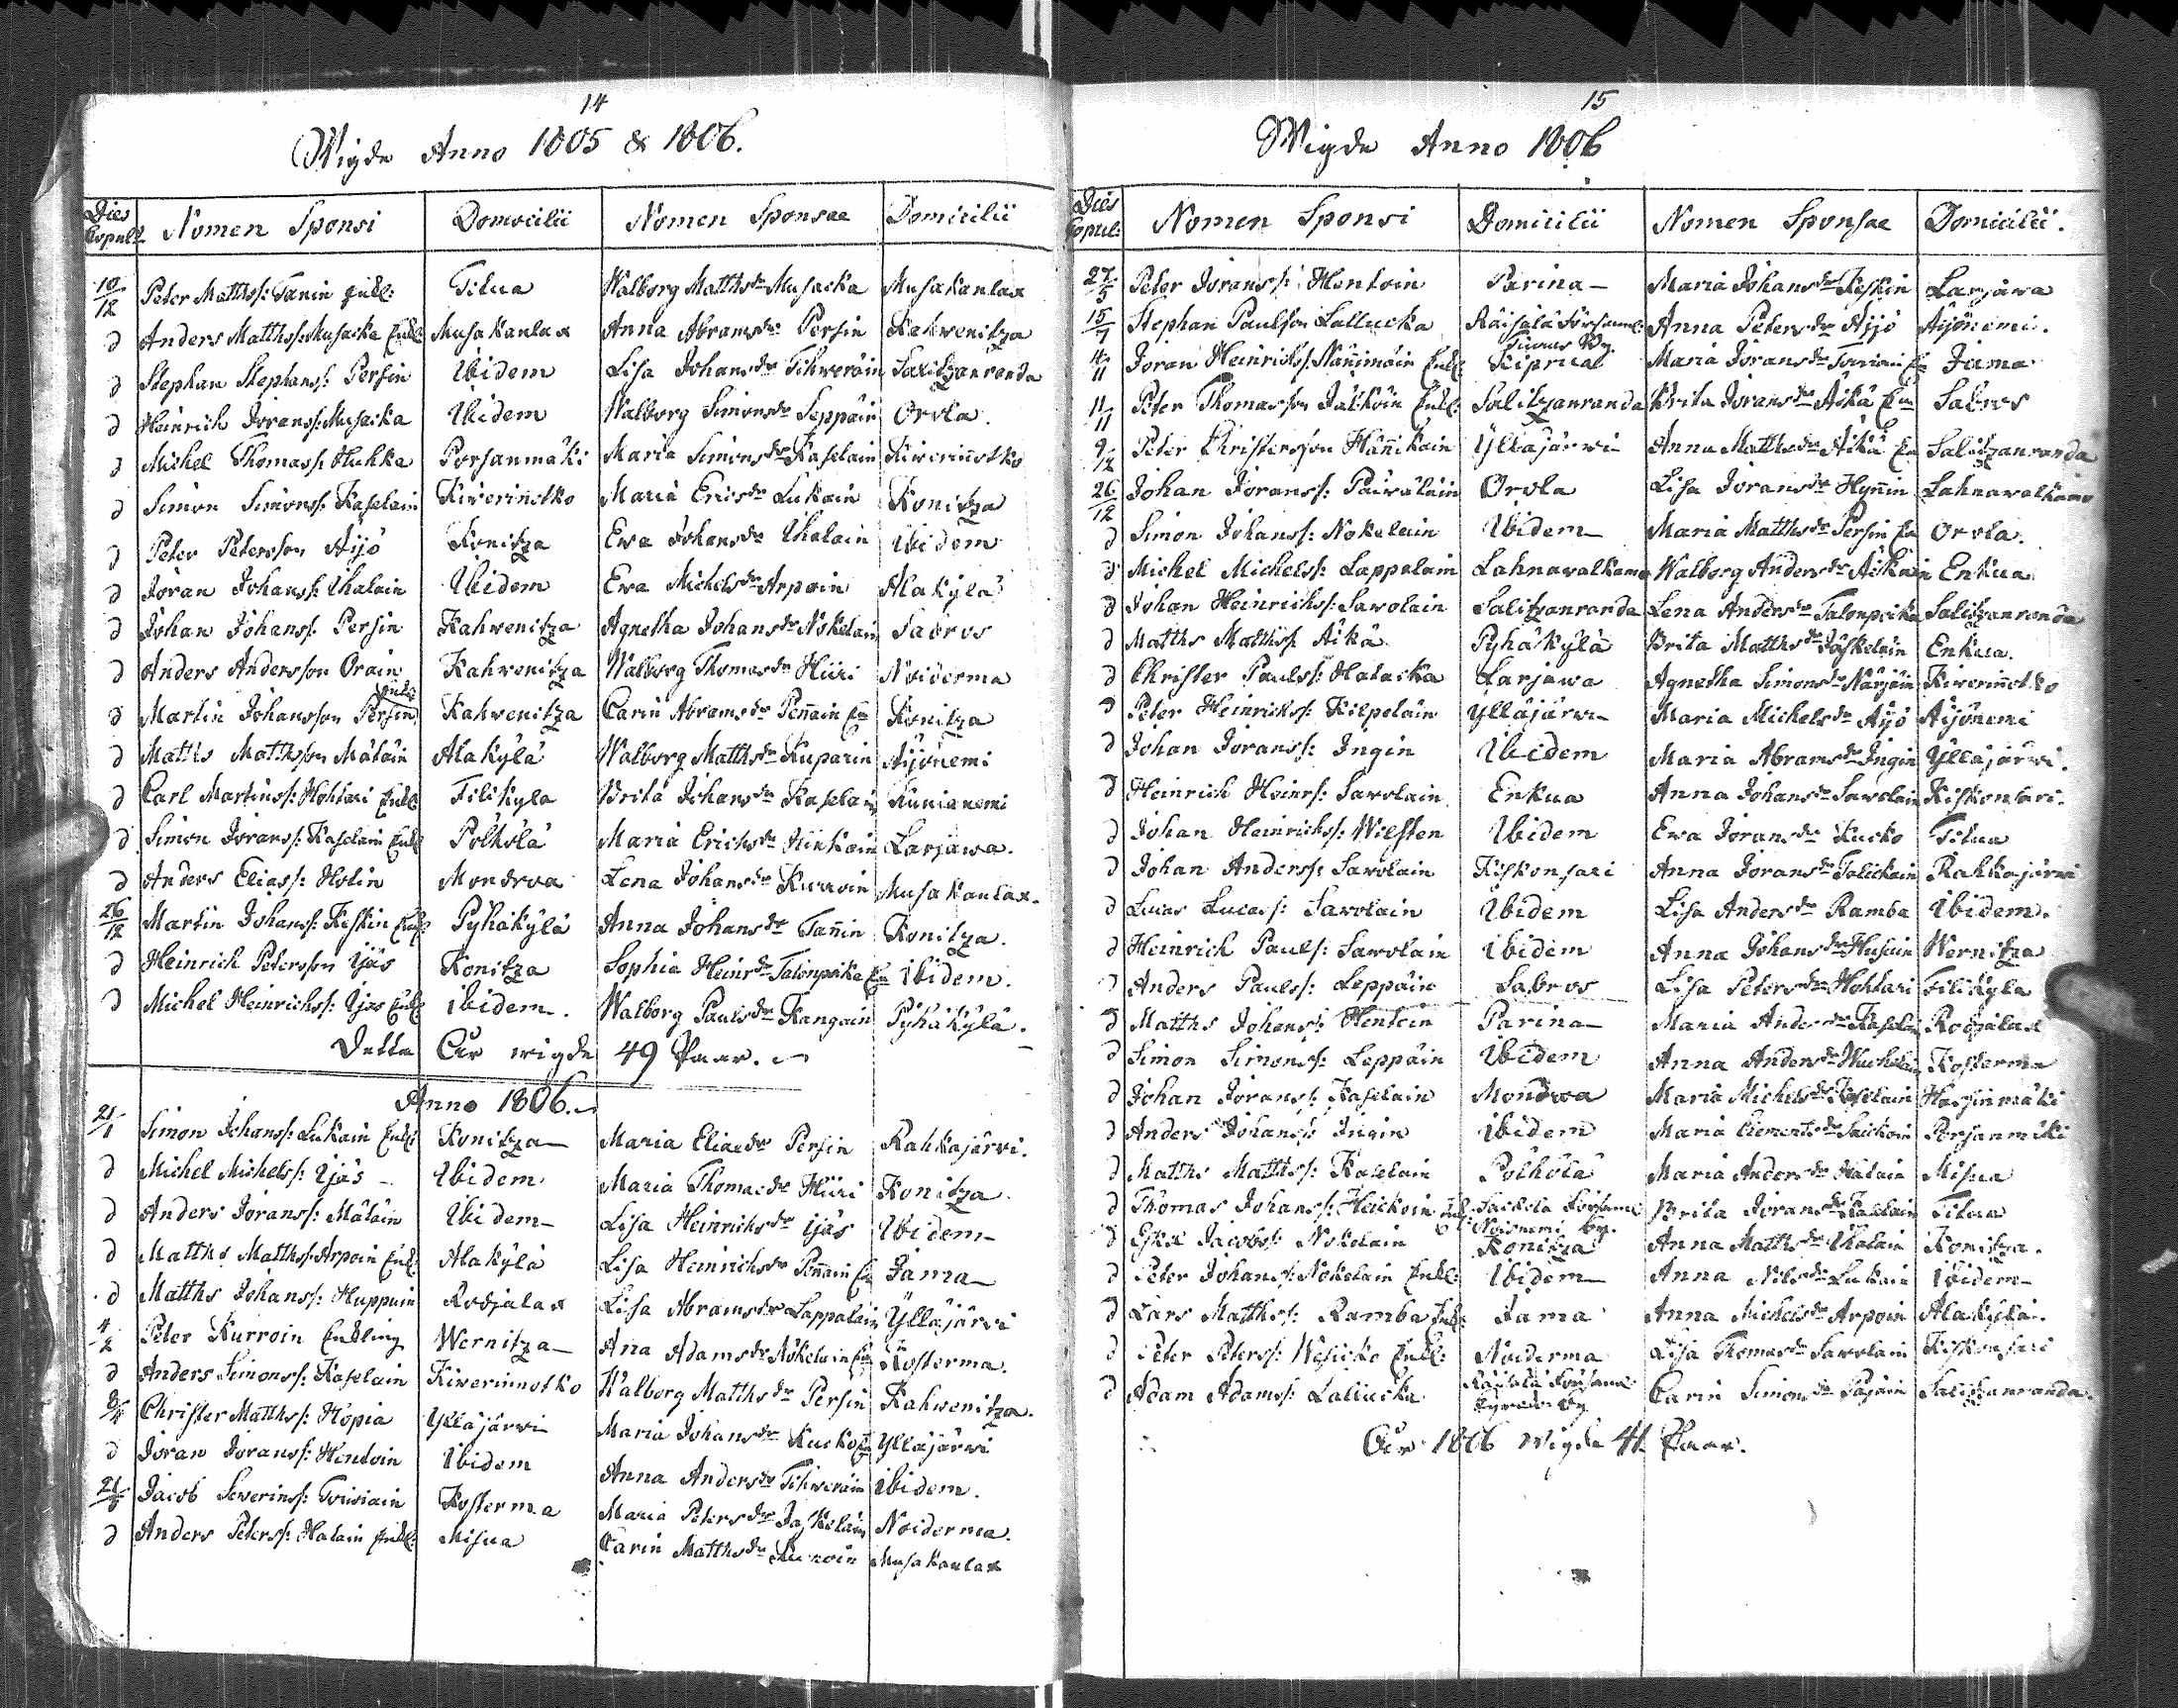 14
Wigde Anno 1805 & 1806.
Dies Copul: Nomen Sponsi Domicilii Nomen Sponsae Domicilii
10/12 Peter Matthss: Tanin Enkl: Titua Walborg Matthsdr Musacka Musakanlax
d Anders Matthss: Musacka Enkl Musakanlax Anna Abramsdr Persin Kahwenitza
d Stephan Stephanss: Persin Ibidem Lisa Johansdr Tihweräin Salitzanranda
d Heinrich Joranss: Musacka Ibidem Walborg Simonsdr Seppäin Orola.
d Michel Thomass: Huhka Porsanmäki Maria Simonsdr Kaselain Kiwerinotko
d Simon Simonss: Kaselain Kiwerinotko Maria Ericsdr Lukain Konitza
d Peter Petersson Äijö Konitza Ewa Johansdr Ihalain Ibidem
d Joran Johanss: Ihalain Ibidem Ewa Michelsdr Arpoin Alakylä
d Johan Johanss: Persin Kahwenitza Agnetha Johansdr Nokelain Sabros
d Anders Andersson Orain Kahwenitza Walborg Thomasdr Hiiri Noiderma
d Martin Johansson Persin Enkl Kahwenitza Carin Abramsdr Pennain En Konitza
d Matths Matthsson Mälain Alakylä Walborg Matthsdr Kuparin Äijönemi
d Carl Martinss: Hohtari Enkl Filikyla Brita Johansdr Kaselain Kunianemi
d Simon Joranss: Kaselain Enkl Pölhölä Maria Ericksdr Hinkain Larjawa.
d Anders Eliass: Holin Mondroa Lena Johansdr Kurroin Musakanlax.
26/12 Martin Johanss: Keskin Enkl Pyhäkylä Anna Johansdr Tanin Konitza.
d Heinrich Petersson Ijäs Konitza Sophia Heinrdr Talonpoika En Ibidem.
d Michel Heinrichss: Ijäs Enkl ibidem. Walborg Paulsdr Kangain Pyhäkylä.
Detta Åhr wigde 49 Paar.
Anno 1806.
21/1 Simon Johanss: Lukain Enkl Konitza Maria Eliaedr Persin Rahkajärwi.
d Michel Michelss: Ijäs Ibidem Maria Thomaedr Hiiri Konitza
d Anders Joranss: Mälain Ibidem Lisa Heinrichsdr Ijäs Ibidem
d Matths Matthss: Arpoin Enkl: Alakylä Lisa Heinrichsdr Pennain En Jama
d Matths Johanss: Huppuin Rodjalax Lisa Abramsdr Lappalain Ylläjärwi
4/2 Peter Kurroin Enkling Wernitza Ana Adamsdr Nokelain En Kosterma.
d Anders Simonss: Kaselain Kiwerinnotko Walborg Matthsdr Persin Kahwenitza.
8/4 Christer Matthss: Hopia Ylläjärwi Maria Johansdr Kucko En Ylläjärwi
d Joran Joranss: Hentoin Ibidem Anna Andersdr Tihweräin ibidem.
Jacob Sewerinss: Kosterma Maria Petersdr Jaskelain Noiderma.
d Anders Peterss: Halain Enkl: Misua Carin Matthsdr Kurroin Musakanlax
15
Wigde Anno 1806
Dies Copul: Nomen Sponsi Domicilii Nomen Sponsae Domicilii.
27/5 Peter Joranss: Hentoin Parina Maria Johansdr Keskin Larjawa
15/7 Stephan Paulsson Lallucka Räisälä Församl: By Anna Petersdr Äijö Äijönemi.
4/11 Joran Heinrichss: Nanimäin Enkl Maria Joransdr En Jama
11/11 Peter Thomasson Jälköin Enkl: Salitzanranda Brita Joransdr Äikä En Sabros
9/12 Peter Christersson Hännikäin Ylläjärwi Anna Matthsdr Äikä En Salitzanranda
26/12 Johan Joranss: Päiwäläin Orola Lisa Joransdr Hynnin Lahnawalkama
d Simon Johanss: Nokelain Ibidem Maria Matthsdr Persin En Orola.
d Michel Michelss: Lappalain Lahnawalkama Walborg Andersdr Äikäin Enkua
d Johan Heinrichss: Sawolain Salitzanranda Lena Andersdr Talonpoika Salitzanranda
d Matths Matthss: Äikä Pyhäkylä Brita Matthsdr Jäskeläin Enkua.
d Christer Paulss: Halacka Larjawa Agnetha Simonsdr Närjäin Kiwerinnotko
d Peter Heinrichss: Kilpeläin Ylläjärwi Maria Michelsdr Äijö Äijönemi
d Johan Joranss: Ingin Ibidem Maria Abramsdr Ingin Ylläjärwi.
d Heinrich Heinrs: Sawolain Enkua Anna Johansdr Sawolain Kiskonsari.
d Johan Heinrichss: Wilsten Ibidem Ewa Joransdr Kucko Titua
d Johan Anderss: Sawolain Kiskonsari Anna Joransdr Talickain Rahkajärwi
d Lucas Lucass: Sawolain Ibidem Lisa Andersdr Ramba Ibidem.
d Heinrich Paulss: Sawolain Ibidem Anna Johansdr Husuin Wernitza
d Anders Paulss: Leppäin Sabros Lisa Petersdr Hohtari Filikyla
d Matths Johanss: Hentoin Parina Maria Andersdr Kaselain Rodjalax
d Simon Simonss: Leppäin Ibidem Anna Andersdr Kosterma
d Johan Joranss: Kaselain Mondroa Maria Michelsdr Kaselain
d Anders Johanss: Ingin Ibidem Maria Clementsdr Porsanmäki
d Matths Matthss: Kaselain Pölhölä Maria Andersdr Halain Misua
d Thomas Johanss: Heickoin Enkl: Sackola Församl: Noisnemi by. Brita Joransdr Kaselain Titua
d Eskil Jacobss: Nokelain Konitza Anna Matthsdr Ihalain Konitza.
d Peter Johanss: Nokelain Enkl: Ibidem Anna Nilsdr Lukain Ibidem
d Lars Matthss: Ramba Enkl: Jama Anna Michelsdr Arpoin Alakylä.
d Peter Peterss: Wesicko Enkl: Noiderma Lisa Thomasdr Sawolain Kiskonsari
d Adam Adamss: Lallucka Räisälä Församl: By Carin Simonsdr Pajain Salitzanranda.
Åhr 1806 wigde 41 Paar.